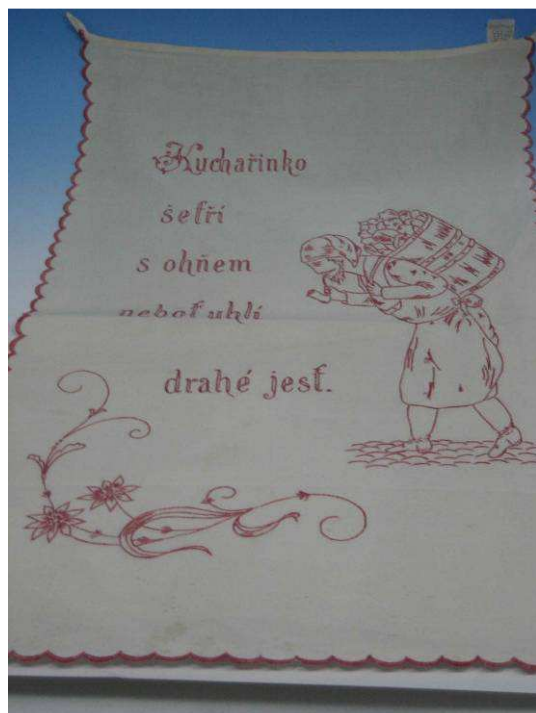 Kuchařinko
šetří
s ohňem
neboť uhlí
drahé jest.